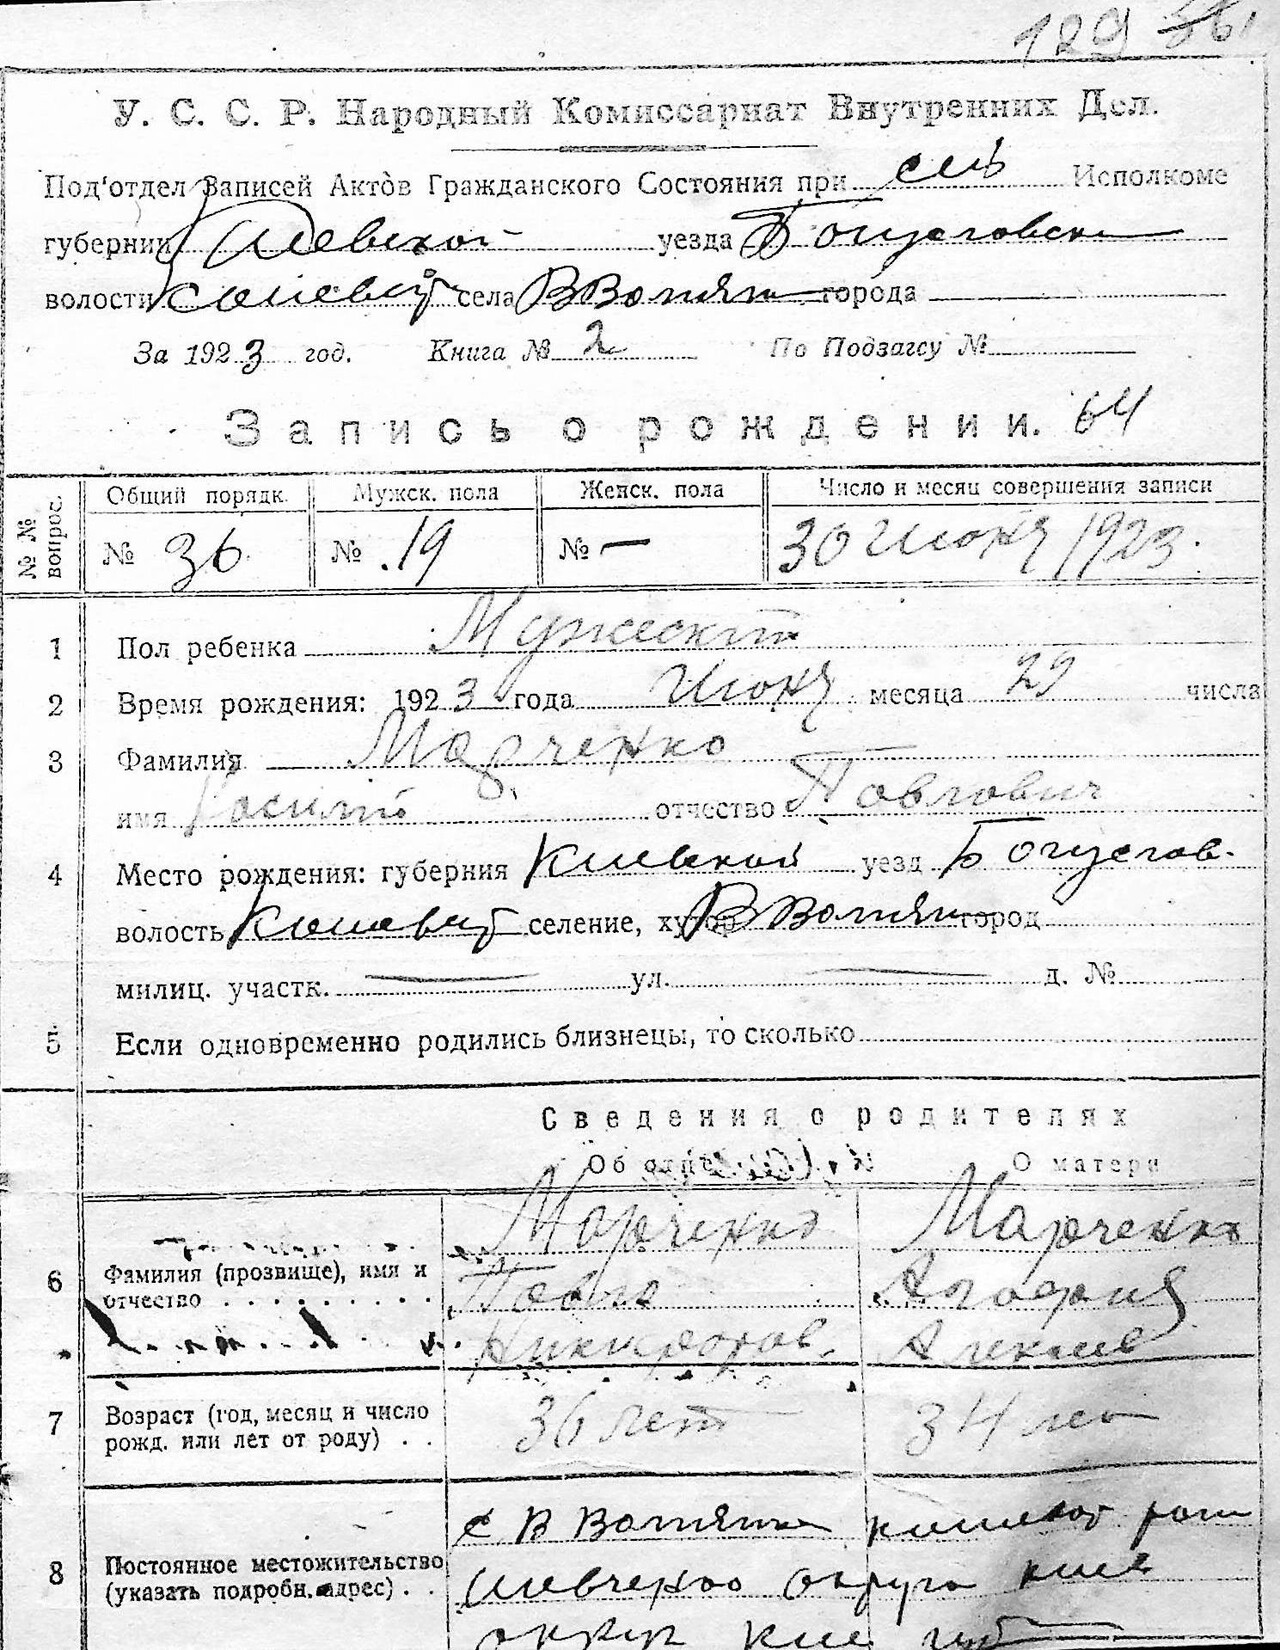 129
У. С. С. Р. Народный Комиссариат Внутренних Дел.
Под'отдел Записей Актов Гражданского Состояния при сель Исполкоме
губернии Киевской уезда Богуславск
волости села В Вотня города
За 1923 год. Книга № 2 По Подзагсу №
Запись о рождении. 64
№ № вопрос. Общий порядк. Мужск. пола Женск. пола Число и месяц совершения записи
№ 36 № 19 № — 30 Июня 1923.
1 Пол ребенка Мужеский
2 Время рождения: 1923 года Июня месяца 29 числа
3 Фамилия Марченко
имя Василий отчество Павлович
4 Место рождения: губерния Киевской уезд Богуслав.
волость селение, хутор город
милиц. участк. — ул. — д. №
5 Если одновременно родились близнецы, то сколько
Сведения о родителях
Об отце О матери
6 Фамилия (прозвище), имя и отчество . . . . . . . .
Марченко Марченко
Павло Агафия
Никифоров. Алексие
7 Возраст (год, месяц и число рожд. или лет от роду) . .
36 лет 34 ле
8 Постоянное местожительство (указать подробн. адрес) . .
с В
Шевченко округа кие
округ кие губ